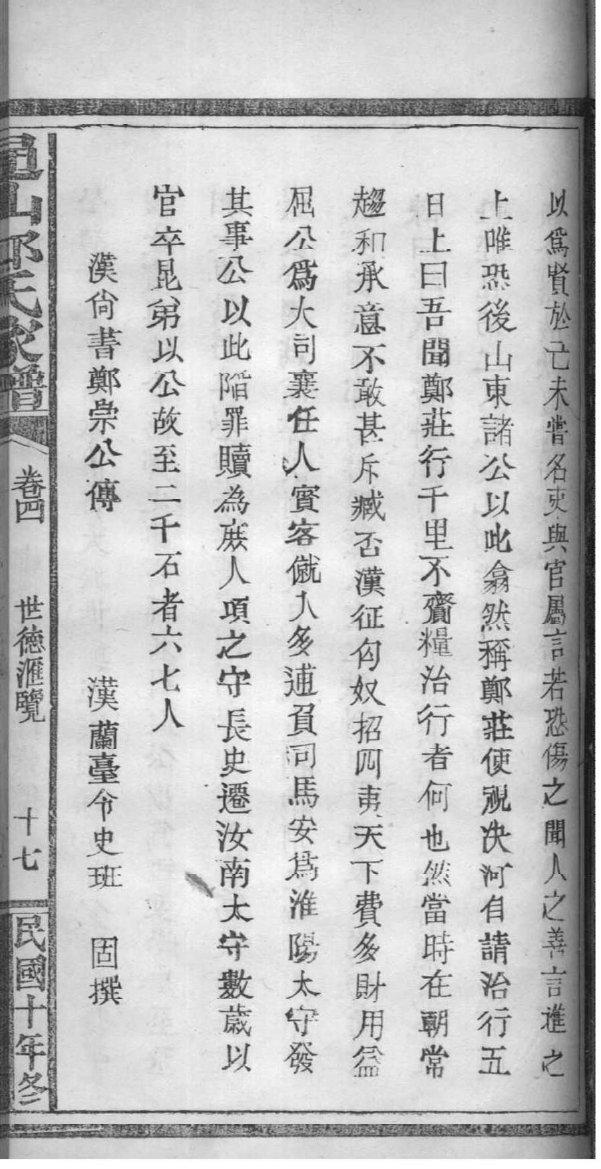 以爲賢於己未嘗名吏與官屬言若恐傷之聞人之善言進之
上唯恐後山東諸公以此翕然稱鄭莊使視決河自請治行五
日上曰吾聞鄭莊行千里不齎糧治行者何也然當時在朝常
趨和承意不敢甚斥臧否漢征匈奴招四夷天下費多財用益
屈公爲大司農任人賓客僦人多逋負司馬安爲淮陽太守發
其事公以此陷罪贖為庶人頃之守長史遷汝南太守數歲以
官卒昆弟以公故至二千石者六七人
漢尙書鄭崇公傳 漢蘭臺令史班 固撰
山鄭氏家譜 卷四 世德滙覽 十七 民國十年冬